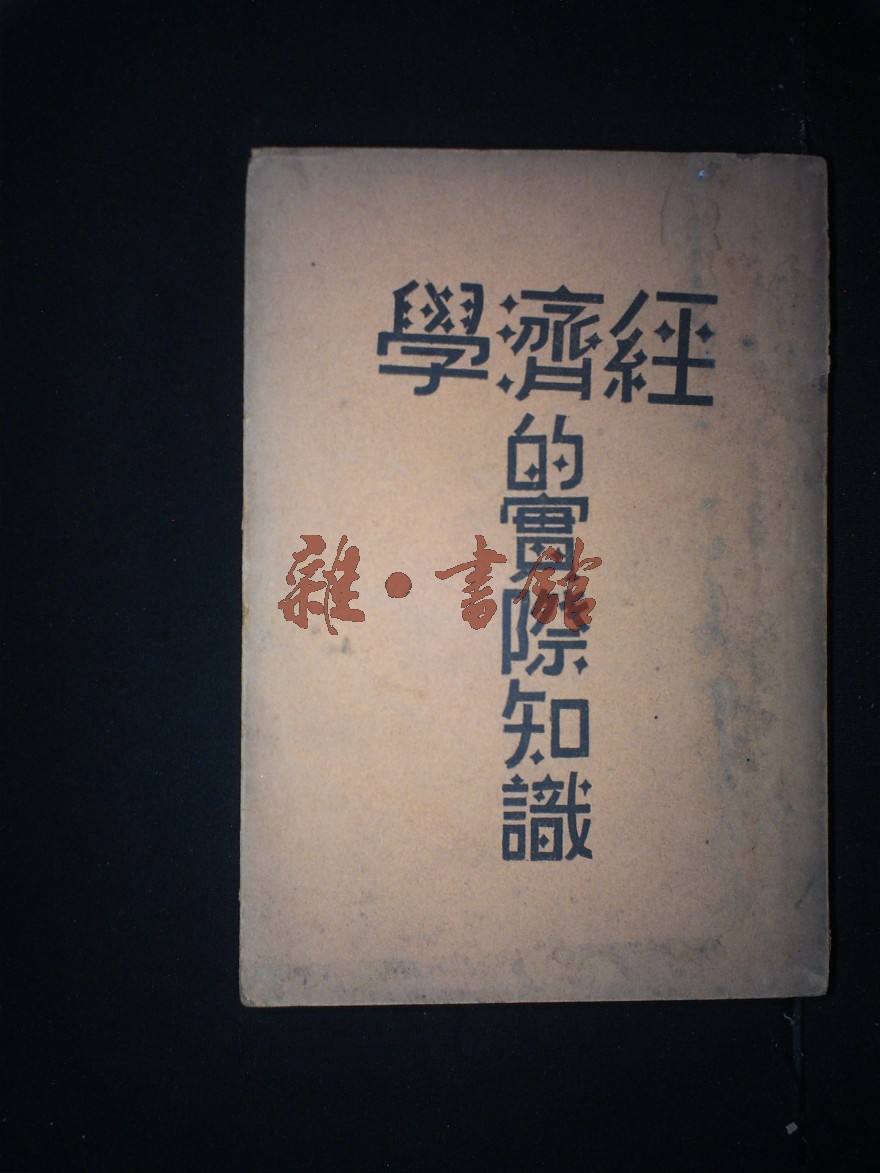 經濟學
的實際知識
雜·書館